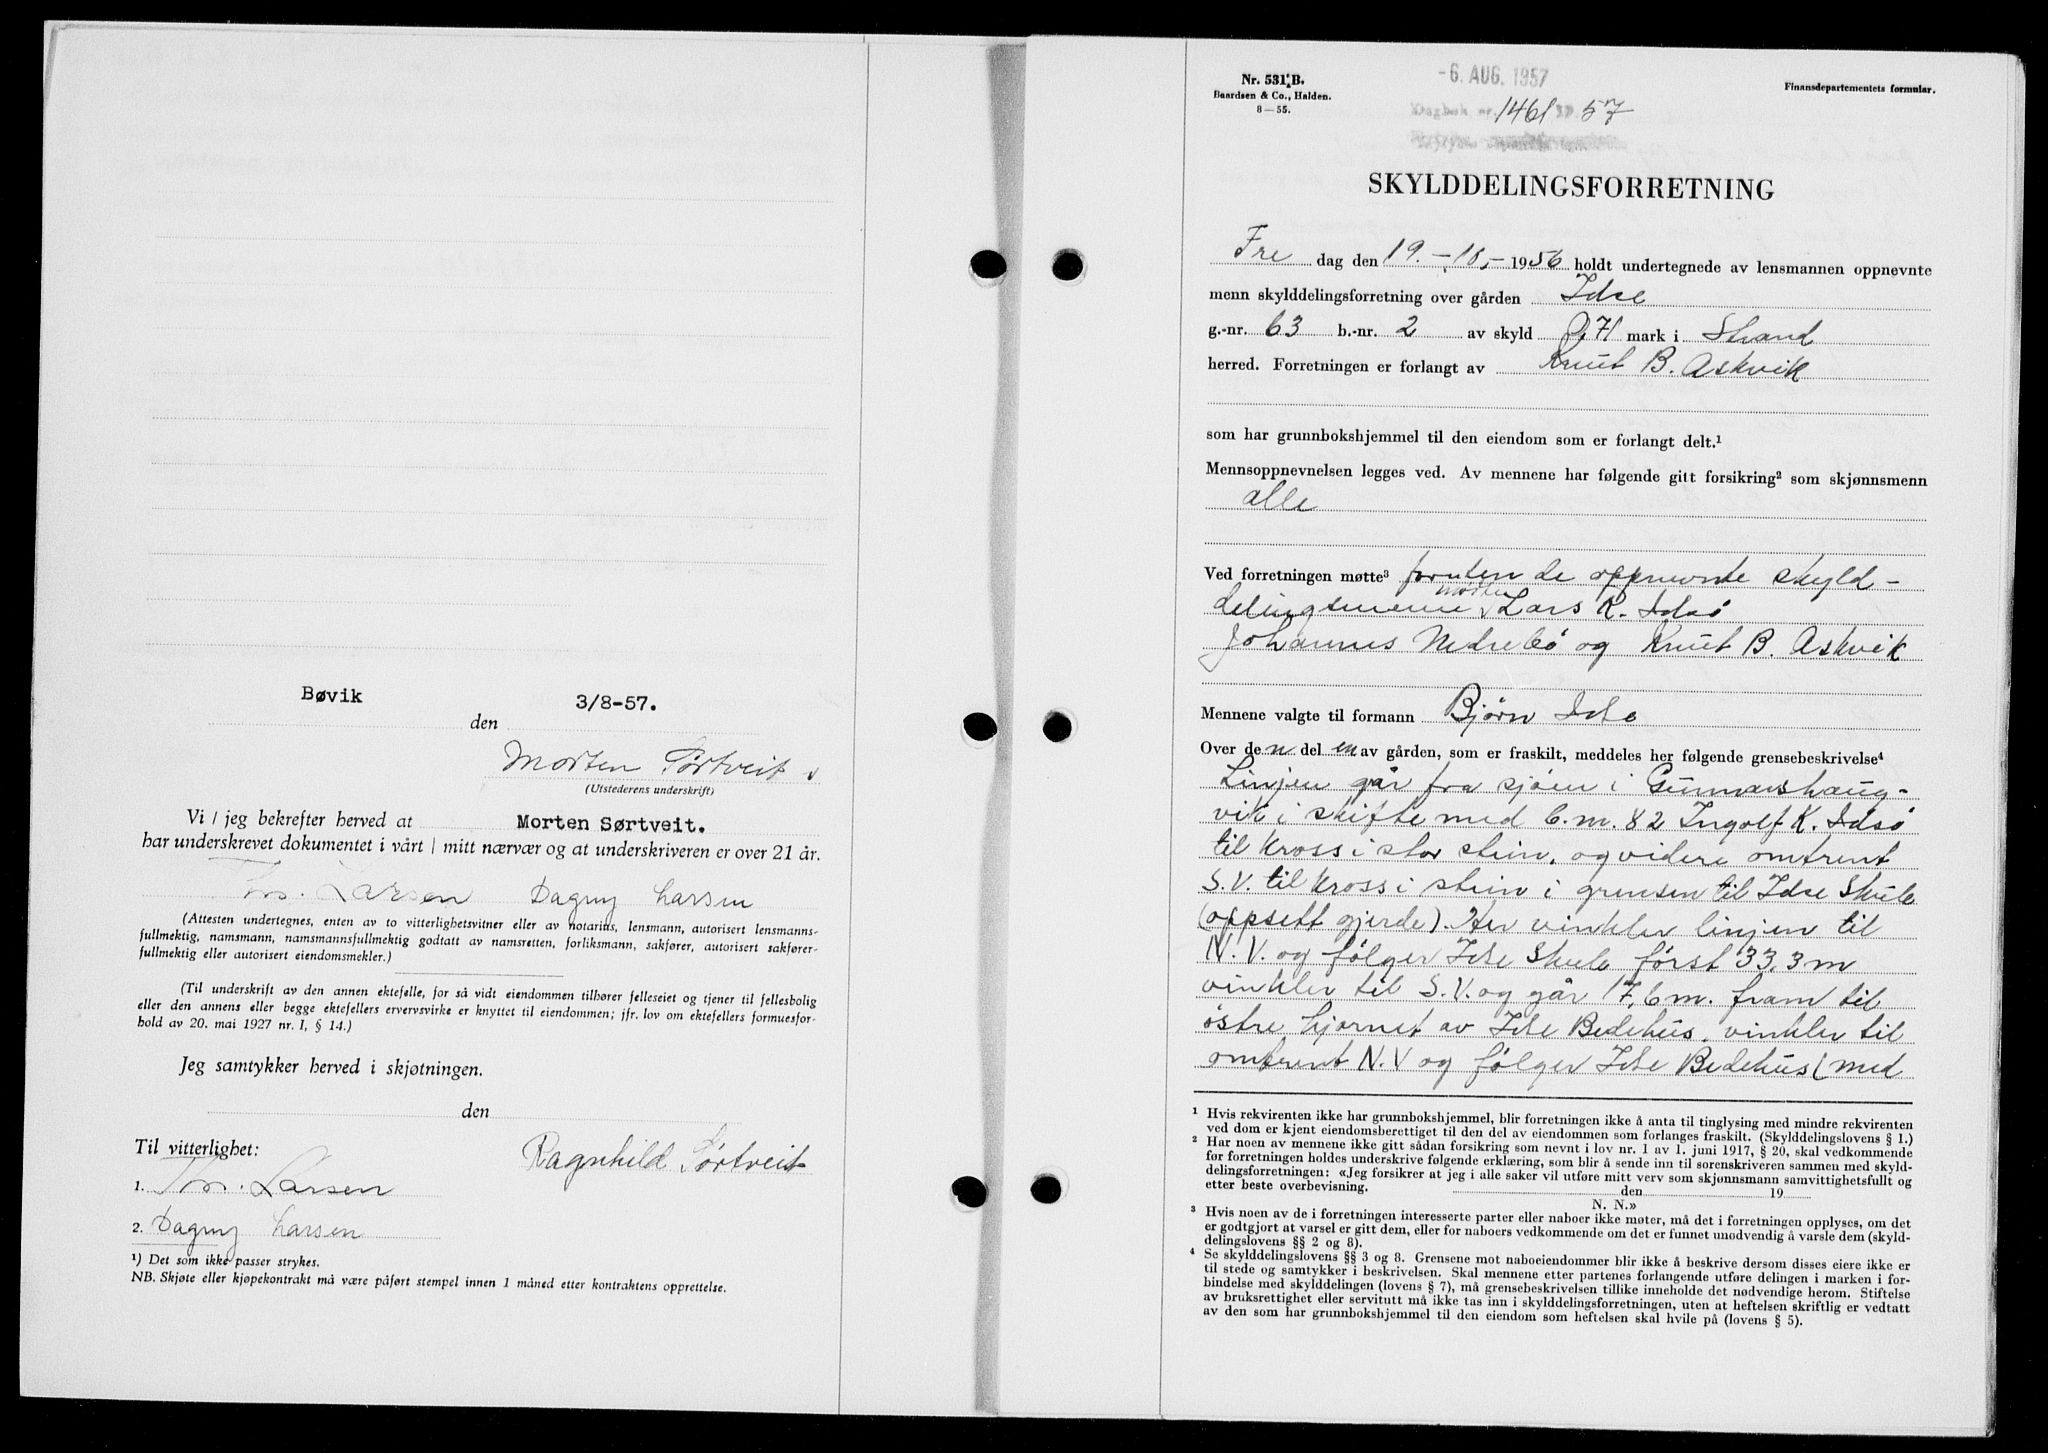 Bøvik 3/8-57.
den
Morten Sørtveit
(Utstederens underskrift)
Vi / jeg bekrefter herved at Morten Sørtveit.
har underskrevet dokumentet i vårt / mitt nærvær og at underskriveren er over 21 år.
Larsen Dagny Larsen
(Attesten undertegnes, enten av to vitterlighetsvitner eller av notarius, lensmann, autorisert lensmanns-
fullmektig, namsmann, namsmannsfullmektig godtatt av namsretten, forliksmann, sakfører, autorisert sakfører-
fullmektig eller autorisert eiendomsmekler.)
(Til underskrift av den annen ektefelle, for så vidt eiendommen tilhører felleseiet og tjener til fellesbolig
eller den annens eller begge ektefellers ervervsvirke er knyttet til eiendommen; jfr. lov om ektefellers formuesfor-
hold av 20. mai 1927 nr. 1, § 14.)
Jeg samtykker herved i skjøtningen.
den
Til vitterlighet:
Ragnhild Sørtveit
1. Larsen
2. Dagny Larsen
¹) Det som ikke passer strykes.
NB. Skjøte eller kjøpekontrakt må være påført stempel innen 1 måned etter kontraktens opprettelse.
Nr. 531 B.
Baardsen & Co., Halden.
8 — 55.
-6. AUG. 1957
Dagbok nr. 1461 57
Finansdepartementets formular.
SKYLDDELINGSFORRETNING
Fre dag den 19.-10,- 1956 holdt undertegnede av lensmannen oppnevnte
menn skylddelingsforretning over gården Idse
g.-nr. 63 b.-nr. 2 av skyld 0,71 mark i Strand
herred. Forretningen er forlangt av Knut B. Askvik
som har grunnbokshjemmel til den eiendom som er forlangt delt.¹
Mennsoppnevnelsen legges ved. Av mennene har følgende gitt forsikring² som skjønnsmenn
alle
Ved forretningen møtte³ foruten de oppnevnte skyld-
delingsmenn møtte Lars K. Idsø
Johannes Nedrebø og Knut B. Askvik
Mennene valgte til formann Bjørn Idse
Over den delen av gården, som er fraskilt, meddeles her følgende grensebeskrivelse⁴
Linjen går fra sjøen i Gunnarshaug-
vik i skifte med b.m. 82 Ingolf K. Idsø
til kross i stor stein, og videre omtrent
S.V. til kross i stein i grensen til Idse Skule
(oppsett gjerde). Her vinkler linjen til
N.V. og følger Idse Skule først 33,3 m
vinkler til S.V. og går 17,6 m. fram til
østre hjørnet av Idse Bedehus, vinkler til
omtrent N.V og følger Idse Bedehus (med
¹ Hvis rekvirenten ikke har grunnbokshjemmel, blir forretningen ikke å anta til tinglysing med mindre rekvirenten
ved dom er kjent eiendomsberettiget til den del av eiendommen som forlanges fraskilt. (Skylddelingslovens § 1.)
² Har noen av mennene ikke gitt sådan forsikring som nevnt i lov nr. 1 av 1. juni 1917, § 20, skal vedkommende
før forretningen holdes underskrive følgende erklæring, som blir å sende inn til sorenskriveren sammen med skyld-
delingsforretningen: «Jeg forsikrer at jeg i alle saker vil utføre mitt verv som skjønnsmann samvittighetsfullt og
etter beste overbevisning. den 19
N. N.»
³ Hvis noen av de i forretningen interesserte parter eller naboer ikke møter, må det i forretningen opplyses, om det
er godtgjort at varsel er gitt dem, eller for naboers vedkommende om det er funnet unødvendig å varsle dem (skyld-
delingslovens §§ 2 og 8).
⁴ Se skylddelingslovens §§ 3 og 8. Grensene mot naboeiendommer blir ikke å beskrive dersom disses eiere ikke er
til stede og samtykker i beskrivelsen. Skal mennene etter partenes forlangende utføre delingen i marken i for-
bindelse med skylddelingen (lovens § 7), må grensebeskrivelsen tillike inneholde det nødvendige herom. Stiftelse
av bruksrettighet eller servitutt må ikke tas inn i skylddelingsforretningen, uten at heftelsen skriftlig er vedtatt
av den som har grunnbokshjemmel til den eiendom som heftelsen skal hvile på (lovens § 5).